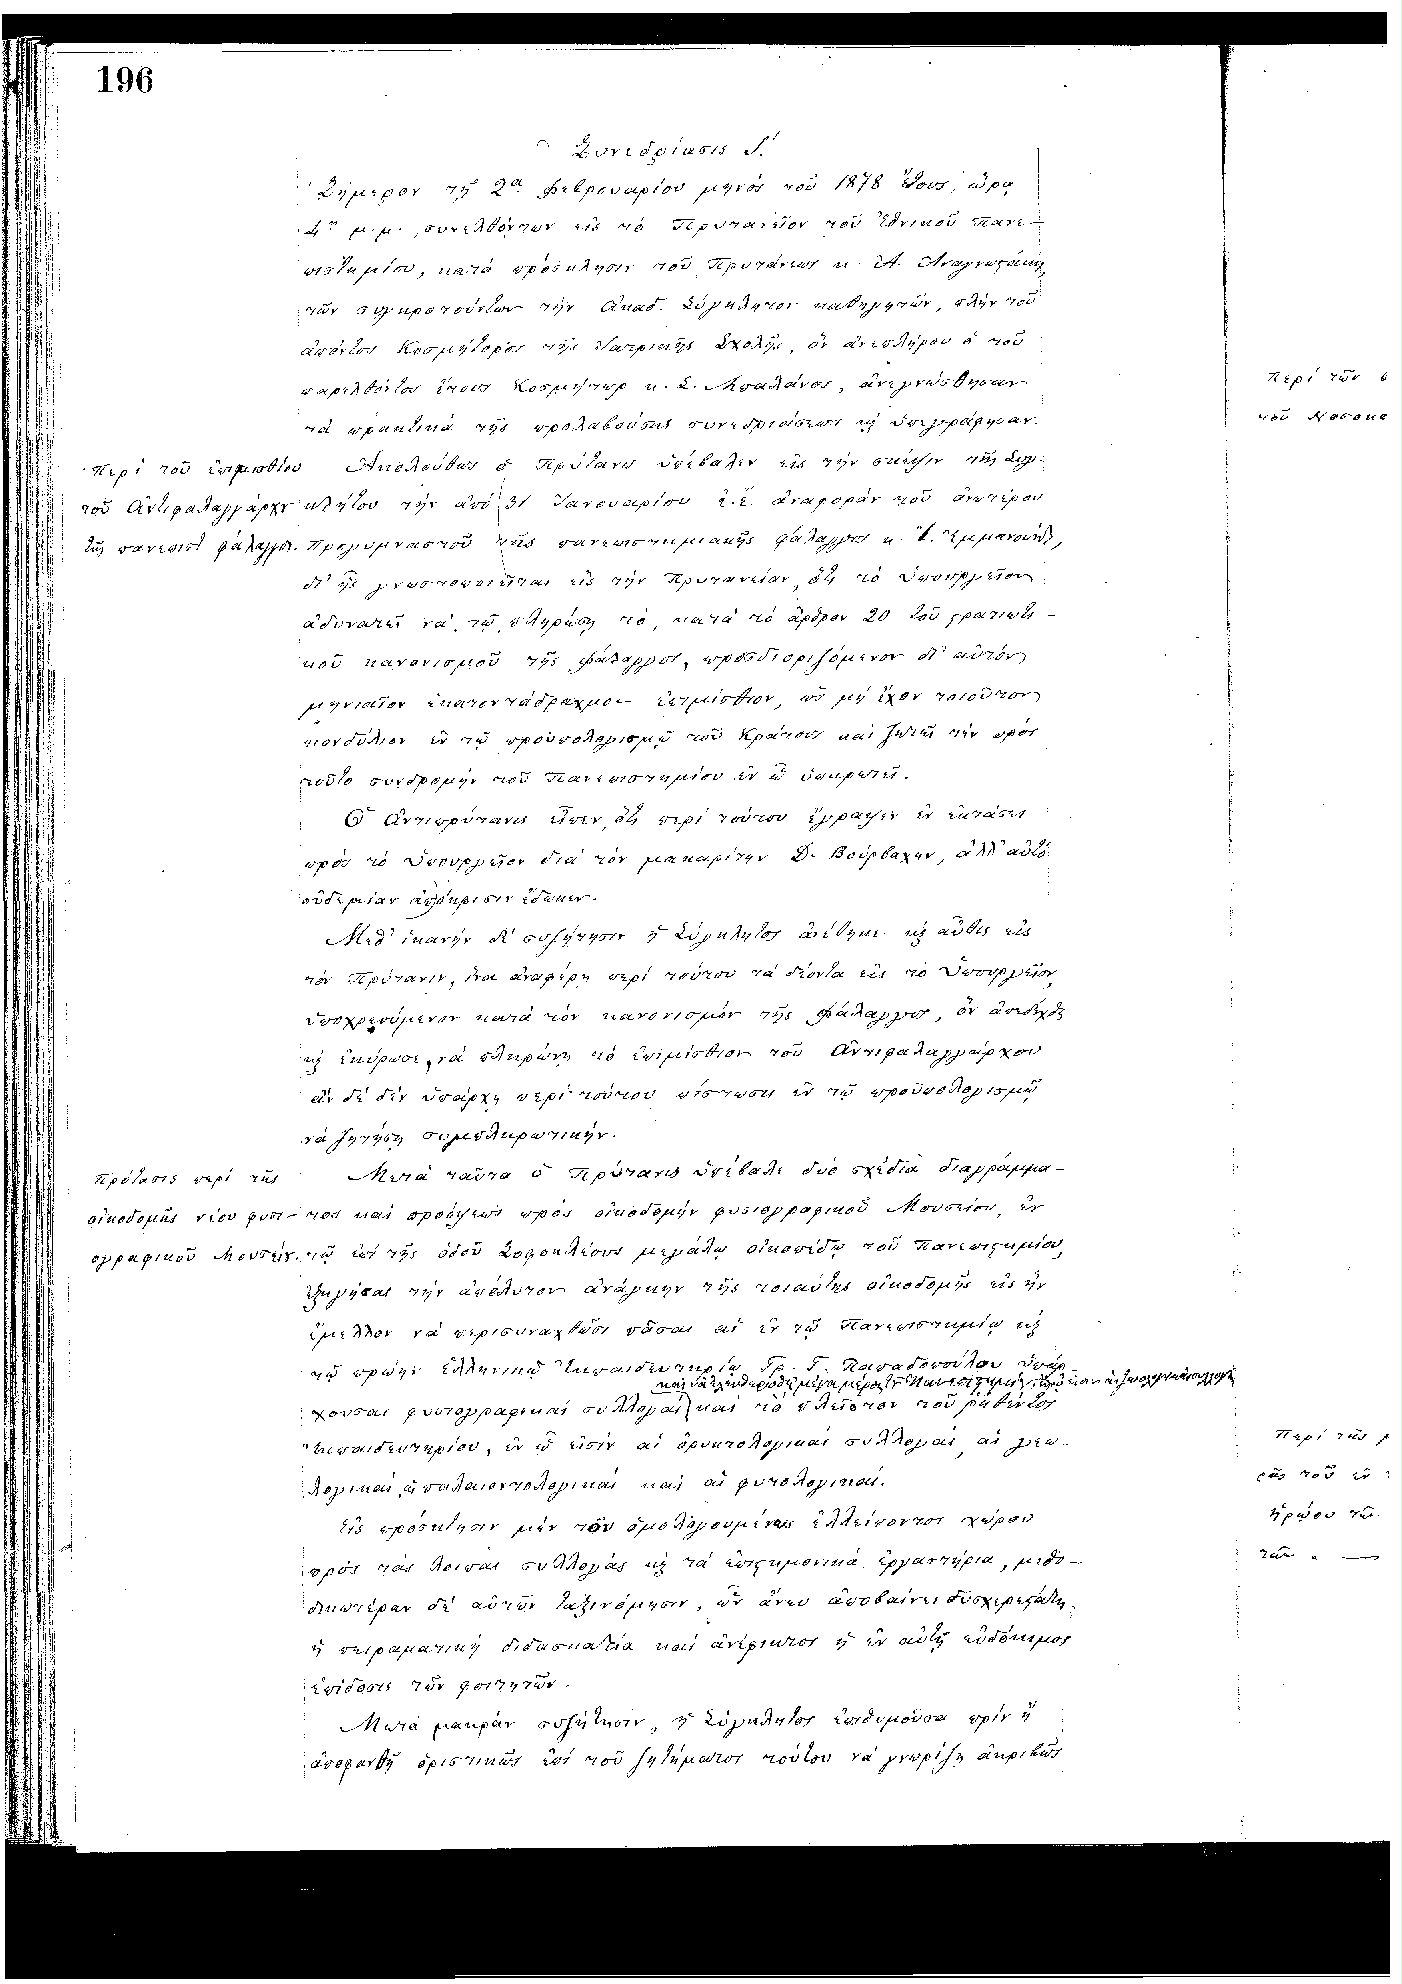 196
Συνεδρίασις
Σήμερον τῇ 2ᾳ Φεβρουαρίου μηνὸς τοῦ 1878 ἔτους, ὥρᾳ
4ῃ μ.μ., συνελθόντων εἰς τὸ Πρυτανεῖον τοῦ Ἐθνικοῦ Πανε-
πιστημίου, κατὰ πρόσκλησιν τοῦ Πρυτάνεως κ. Ἀ. Ἀναγνωστάκη
τῶν συγκροτούντων τὴν Ἀκαδ. Σύγκλητον καθηγητῶν, πλὴν τοῦ
ἀπόντος Κοσμήτορος τῆς Ἰατρικῆς Σχολῆς, ὃν ἀνεπλήρου ὁ τοῦ
παρελθόντος ἔτους Κοσμήτωρ κ. Σ. Μπαλάνος, ἀνεγνώσθησαν
τὰ πρακτικὰ τῆς προλαβούσης συνεδριάσεως κ̀ ὑπεγράφησαν.
Περὶ τοῦ ἐπιμισθίου
τοῦ Ἀντιφαλαγγάρχου
τῆς πανεπιστ. φάλαγγος.
Ἀκολούθως ὁ Πρύτανις ὑπέβαλεν εἰς τὴν σκέψιν τῆς Συγ-
κλήτου τὴν ἀπὸ 31 Ἰανουαρίου ἐ.ἔ. ἀναφορὰν τοῦ ἀνωτέρου
Προγυμναστοῦ τῆς πανεπιστημιακῆς φάλαγγος κ. Ἐμμανουήλ,
δι' ἧς γνωστοποιεῖται εἰς τὴν Πρυτανείαν, ὅτι τὸ Ὑπουργεῖον
ἀδυνατεῖ νὰ τῷ πληρώσῃ τὸ, κατὰ τὸ ἄρθρον 20 τοῦ στρατιωτι-
κοῦ κανονισμοῦ τῆς Φάλαγγος, προσδιοριζόμενον δι' αὐτὸν
μηνιαῖον ἑκατοντάδραχμον ἐπιμίσθιον, ὡς μὴ ἔχον τοιοῦτον
κονδύλιον ἐν τῷ προϋπολογισμῷ τοῦ Κράτους καὶ ζητεῖ τὴν πρὸς
τοῦτο συνδρομὴν τοῦ Πανεπιστημίου ἐν ᾧ ὑπηρετεῖ.
Ὁ Ἀντιπρύτανις εἶπεν, ὅτι περὶ τούτου ἔγραψεν ἐν ἐκτάσει
πρὸς τὸ Ὑπουργεῖον διὰ τὸν μακαρίτην Δ. Βούρβαχην, ἀλλ' αὐτὸ
οὐδεμίαν ἀπόκρισιν ἔδωκεν.
Μεθ' ἱκανὴν δὲ συζήτησιν ἡ Σύγκλητος ἀνέθηκε κ̀ αὖθις εἰς
τὸν Πρύτανιν, ἵνα ἀναφέρῃ περὶ τούτου τὰ δέοντα εἰς τὸ Ὑπουργεῖον
ὑποχρεούμενον κατὰ τὸν κανονισμὸν τῆς Φάλαγγος, ὃν ἀπεδέχθη
κ̀ ἐκύρωσε, νὰ πληρώνῃ τὸ ἐπιμίσθιον τοῦ Ἀντιφαλαγγάρχου
ἂν δὲ δὲν ὑπάρχῃ περὶ τούτου πίστωσις ἐν τῷ προϋπολογισμῷ
νὰ ζητήσῃ συμπληρωτικήν.
Πρότασις περὶ τῆς
οἰκοδομῆς νέου φυσι-
ογραφικοῦ Μουσείου.
Μετὰ ταῦτα ὁ Πρύτανις ὑπέβαλε δύο σχέδια διαγράμμα-
τος καὶ προόψεως πρὸς οἰκοδομὴν φυσιογραφικοῦ Μουσείου, ἐν
τῷ ἐπὶ τῆς ὁδοῦ Σοφοκλέους μεγάλῳ οἰκοπέδῳ τοῦ Πανεπιστημίου,
ἐξηγήσας τὴν ἀπόλυτον ἀνάγκην τῆς τοιαύτης οἰκοδομῆς εἰς ἣν
ἔμελλον νὰ περισυναχθῶσι πᾶσαι αἱ ἐν τῷ Πανεπιστημίῳ κ̀
τῷ πρώην Ἑλληνικῷ Ἐκπαιδευτηρίῳ Γρ. Γ. Παπαδοπούλου ὑπάρ-
χουσαι φυσιογραφικαὶ συλλογαὶ καὶ τὸ πλεῖστον τοῦ ῥηθέντος
Ἐκπαιδευτηρίου, ἐν ᾧ εἰσὶν αἱ ὀρυκτολογικαὶ συλλογαὶ, αἱ γεω-
λογικαὶ, αἱ παλαιοντολογικαὶ καὶ αἱ φυτολογικαί.
Εἰς πρόσκτησιν μὲν τοῦ ὁμολογουμένως ἐλλείποντος χώρου
πρὸς τὰς λοιπὰς συλλογὰς κ̀ τὰ ἐπιστημονικὰ ἐργαστήρια, μεθο-
δικωτέραν δὲ αὐτῶν ταξινόμησιν, ὧν ἄνευ ἀποβαίνει δυσχερεστάτη
ἡ πειραματικὴ διδασκαλία καὶ ἀνέφικτος ἡ ἐν αὐτῇ εὐδόκιμος
ἐπίδοσις τῶν φοιτητῶν.
Μετὰ μακρὰν συζήτησιν, ἡ Σύγκλητος ἐπιθυμοῦσα πρὶν ἢ
ἀποφανθῇ ὁριστικῶς ἐπὶ τοῦ ζητήματος τούτου νὰ γνωρίζῃ ἀκριβῶς
Περὶ τῶν
τοῦ Νοσοκο
Περὶ τῆς
ρᾶς τοῦ ἐν
ἡρώου τῶ
τῶν